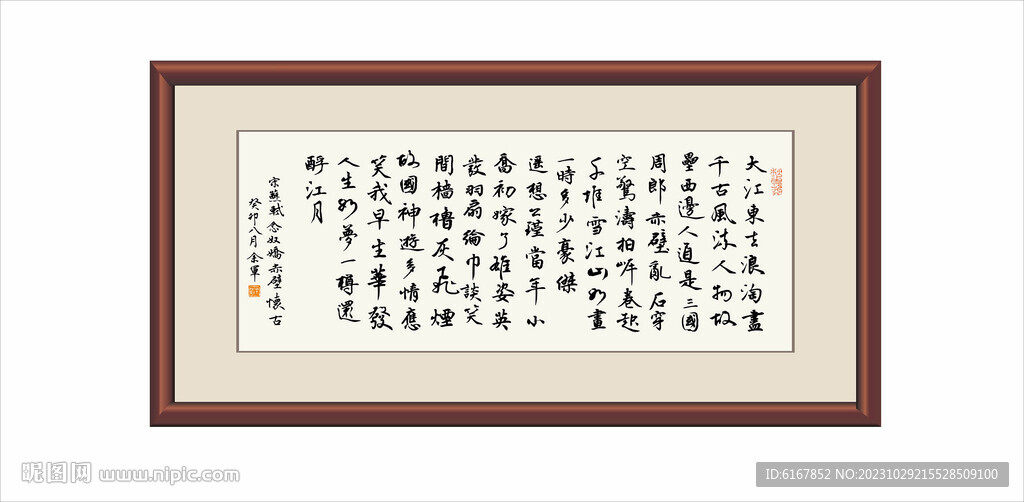 大江東去浪淘盡
千古風流人物故
壘西邊人道是三國
周郎赤壁亂石穿
空驚濤拍岸卷起
千堆雪江山如畫
一時多少豪傑
遥想公瑾當年小
喬初嫁了雄姿英
發羽扇綸巾談笑
間檣櫓灰飛煙
故國神遊多情應
笑我早生華發
人生如夢一樽還
酹江月
宋蘇軾念奴嬌赤壁懷古
癸卯八月余軍
昵图网 www.nipic.com
ID:6167852 NO:20231029215528509100